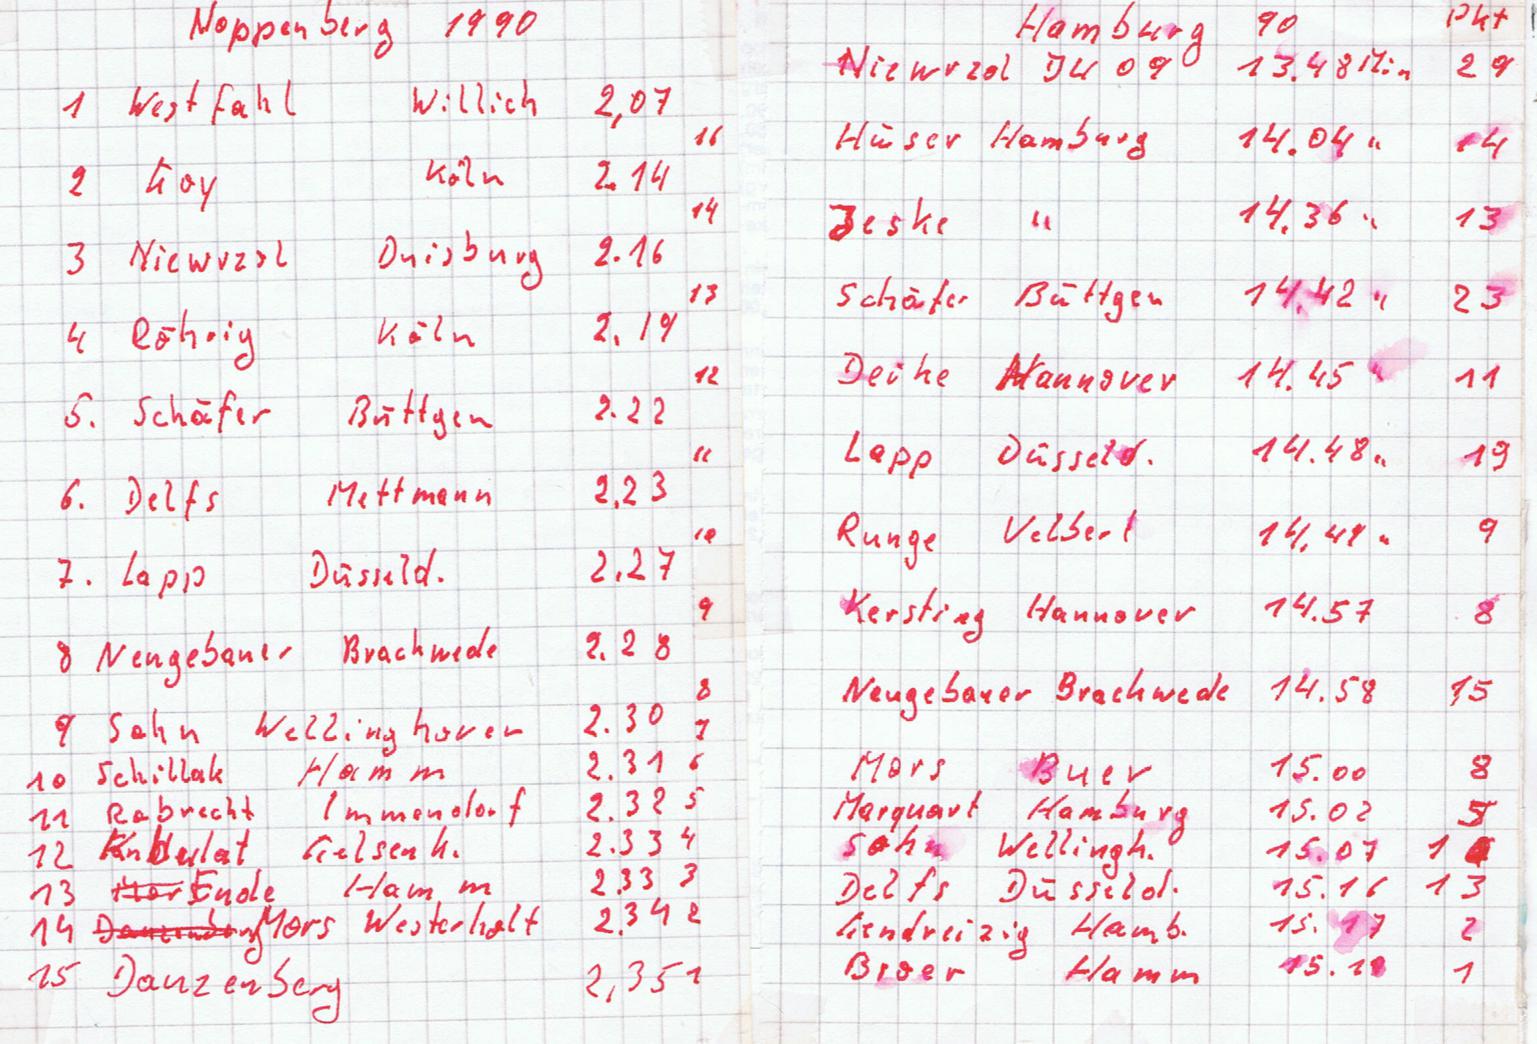 Noppenberg 1990
1 Westfahl Willich 2,07
16
2 Koy Köln 2.14
14
3 Niewrzol Duisburg 2.16
13
4 Röhrig Köln 2.19
12
5. Schäfer Büttgen 2.22
11
6. Delfs Mettmann 2.23
10
7. Lapp Düsseld. 2.27
9
8 Neugebauer Brachwede 2.28
8
9 Sahn Wellinghoven 2.30
7
10 Schillak Hamm 2.31 6
11 Rabrecht Immendorf 2.32 5
12 Gelsenk. 2.33 4
13 Ende Hamm 2.33 3
14 Mors Westerholt 2.34 2
15 Danzenberg 2,35 1
Hamburg 90 Pkt
Niewrzol DU 09 13.48 Min 29
Hüser Hamburg 14.04 " 14
Jeske " 14.36 " 13
Schäfer Büttgen 14.42 " 23
Deike Hannover 14.45 " 11
Lapp Düsseld. 14.48 " 19
Runge Velbert 14.49 " 9
Kersting Hannover 14.57 8
Neugebauer Brachwede 14.58 15
Mors Buer 15.00 8
Marquart Hamburg 15.02 5
Sahn Wellingh. 15.07
Delfs Düsseld. 15.16 13
Gendreizig Hamb. 15.17 2
Hamm 1